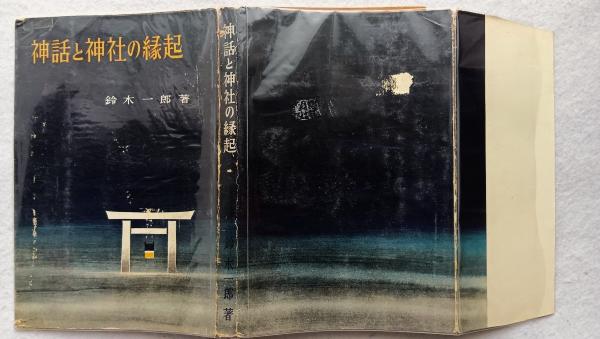 神話と神社の縁起
鈴木一郎著
神話と神社の縁起
鈴木一郎著